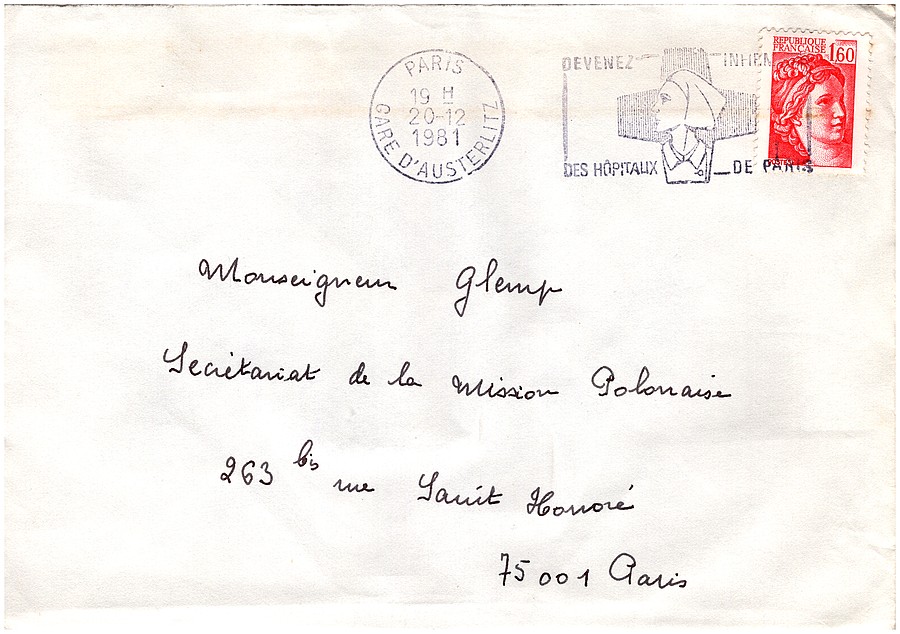 PARIS
19 H
20-12
1981
GARE D'AUSTERLITZ
DEVENEZ
DES HÔPITAUX DE PARIS
REPUBLIQUE
FRANÇAISE 1,60
Monseigneur Glemp
Secrétariat de la Mission Polonaise
263 bis rue Saint Honoré
75001 Paris